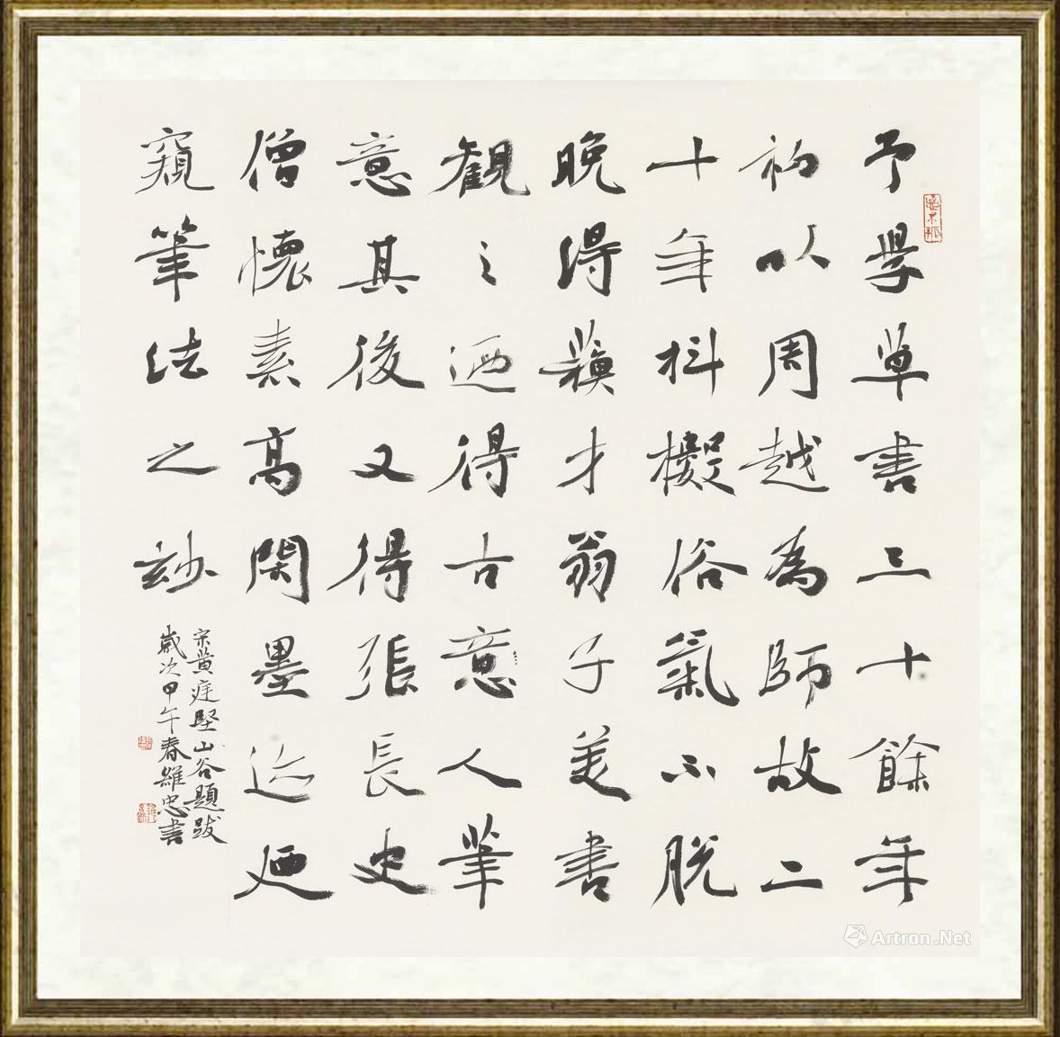 予學草書三十餘年
初以周越為師故二
十年抖擻俗氣不脫
晚得蘇才翁子美書
觀之迺得古意人筆
意其後又得張長史
僧懷素高閑墨迹廼
窺筆法之妙
宋黃庭堅山谷題跋
歲次甲午春維忠書
Artron.Net